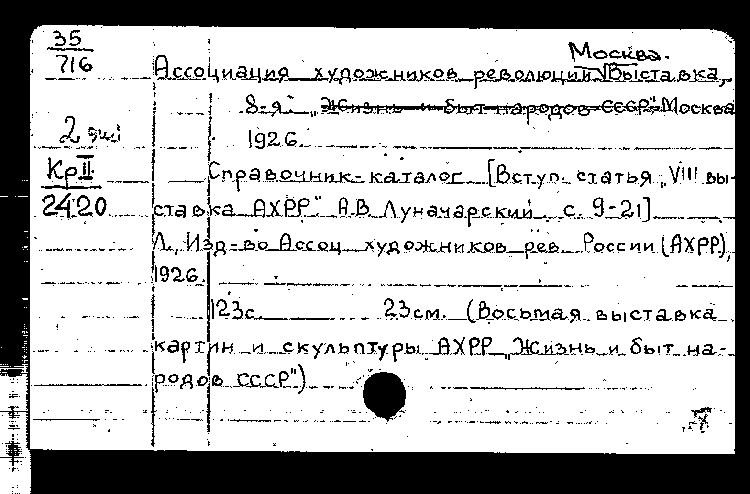 35
716
Москва.
Ассоциация художников революции. Выставка,
8-я. "Жизнь и быт народов СССР". Москва
1926.
2 экз
Кр II
2420
Справочник-каталог [Вступ. статья "VIII вы-
ставка АХРР". А.В. Луначарский. с. 9-21]
Л., Изд-во Ассоц. художников рев. России (АХРР),
1926.
123с. 23см. (Восьмая выставка
картин и скульптуры АХРР "Жизнь и быт на-
родов СССР")